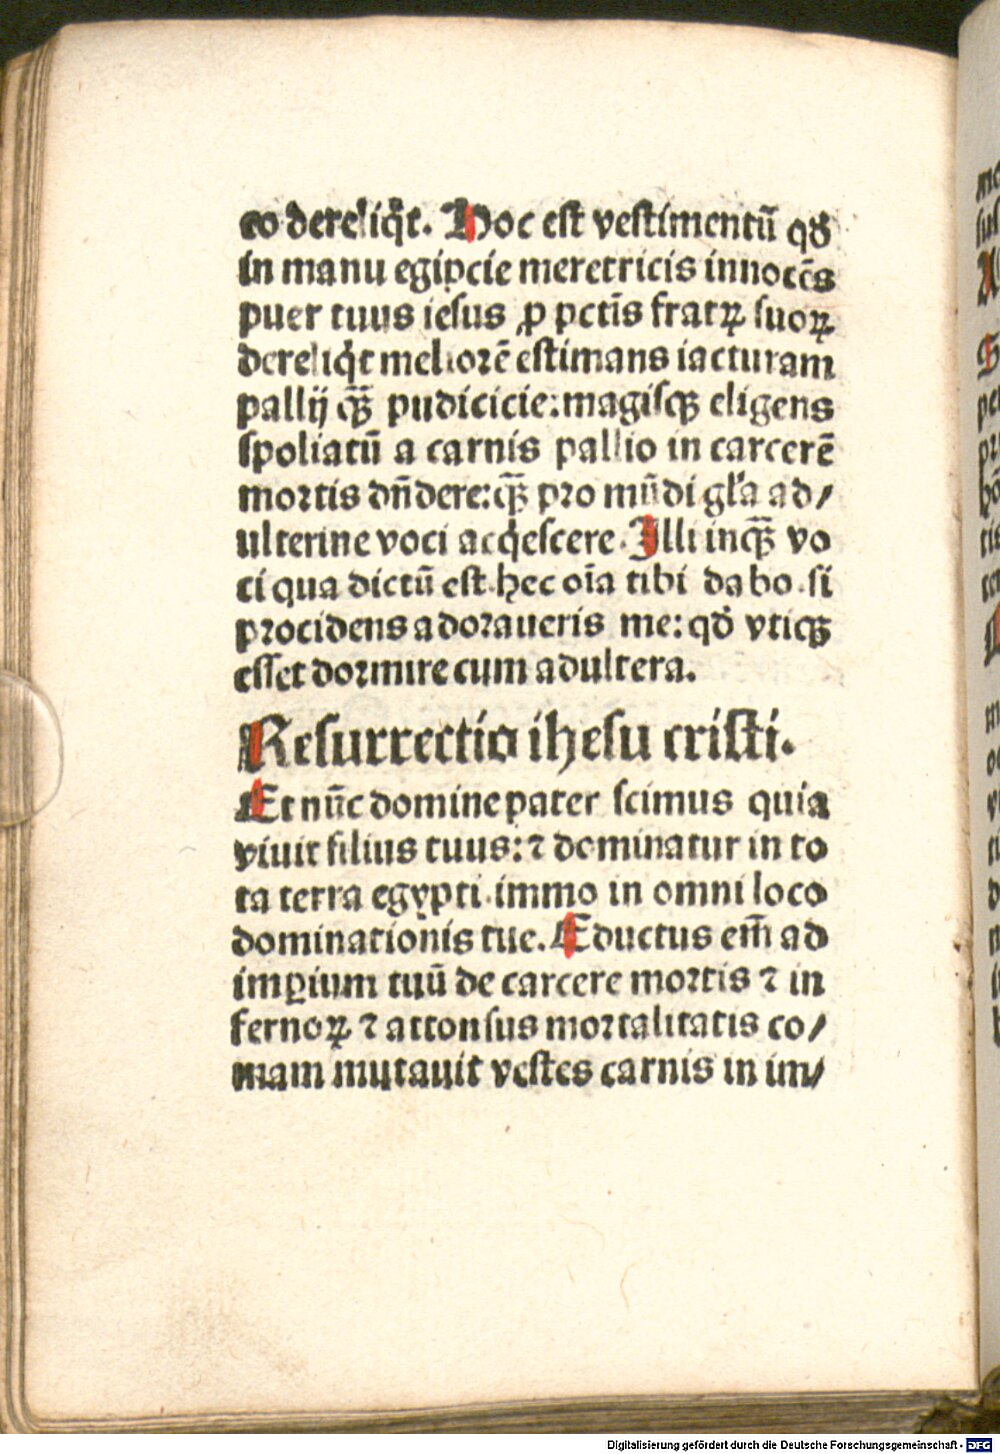 eo dereliq̄t. Hoc est vestimentū qđ
in manu egipcie meretricis innocēs
puer tuus iesus ꝓ pctīs fratꝝ suoꝝ
dereliq̄t meliorē estimans iacturam
pallij qȝ̄ pudicicie: magisqȝ eligens
spoliatū a carnis pallio in carcerē
mortis dn̄dere: qȝ̄ pro mūdi gl'a ad/
ulterine voci acq̄escere. Illi inqȝ̄ vo
ci qua dictū est. hec oīa tibi dabo. si
procidens adoraueris me: qđ vtiqȝ
esset dormire cum adultera.
Resurrectio ihesu cristi.
Et nūc domine pater scimus quia
viuit filius tuus: ⁊ dominatur in to
ta terra egypti. immo in omni loco
dominationis tue. Eductus em̄ ad
imꝑium tuū de carcere mortis ⁊ in
fernoꝝ ⁊ attonsus mortalitatis co/
mam mutauit vestes carnis in im/
Digitalisierung gefördert durch die Deutsche Forschungsgemeinschaft - DFG